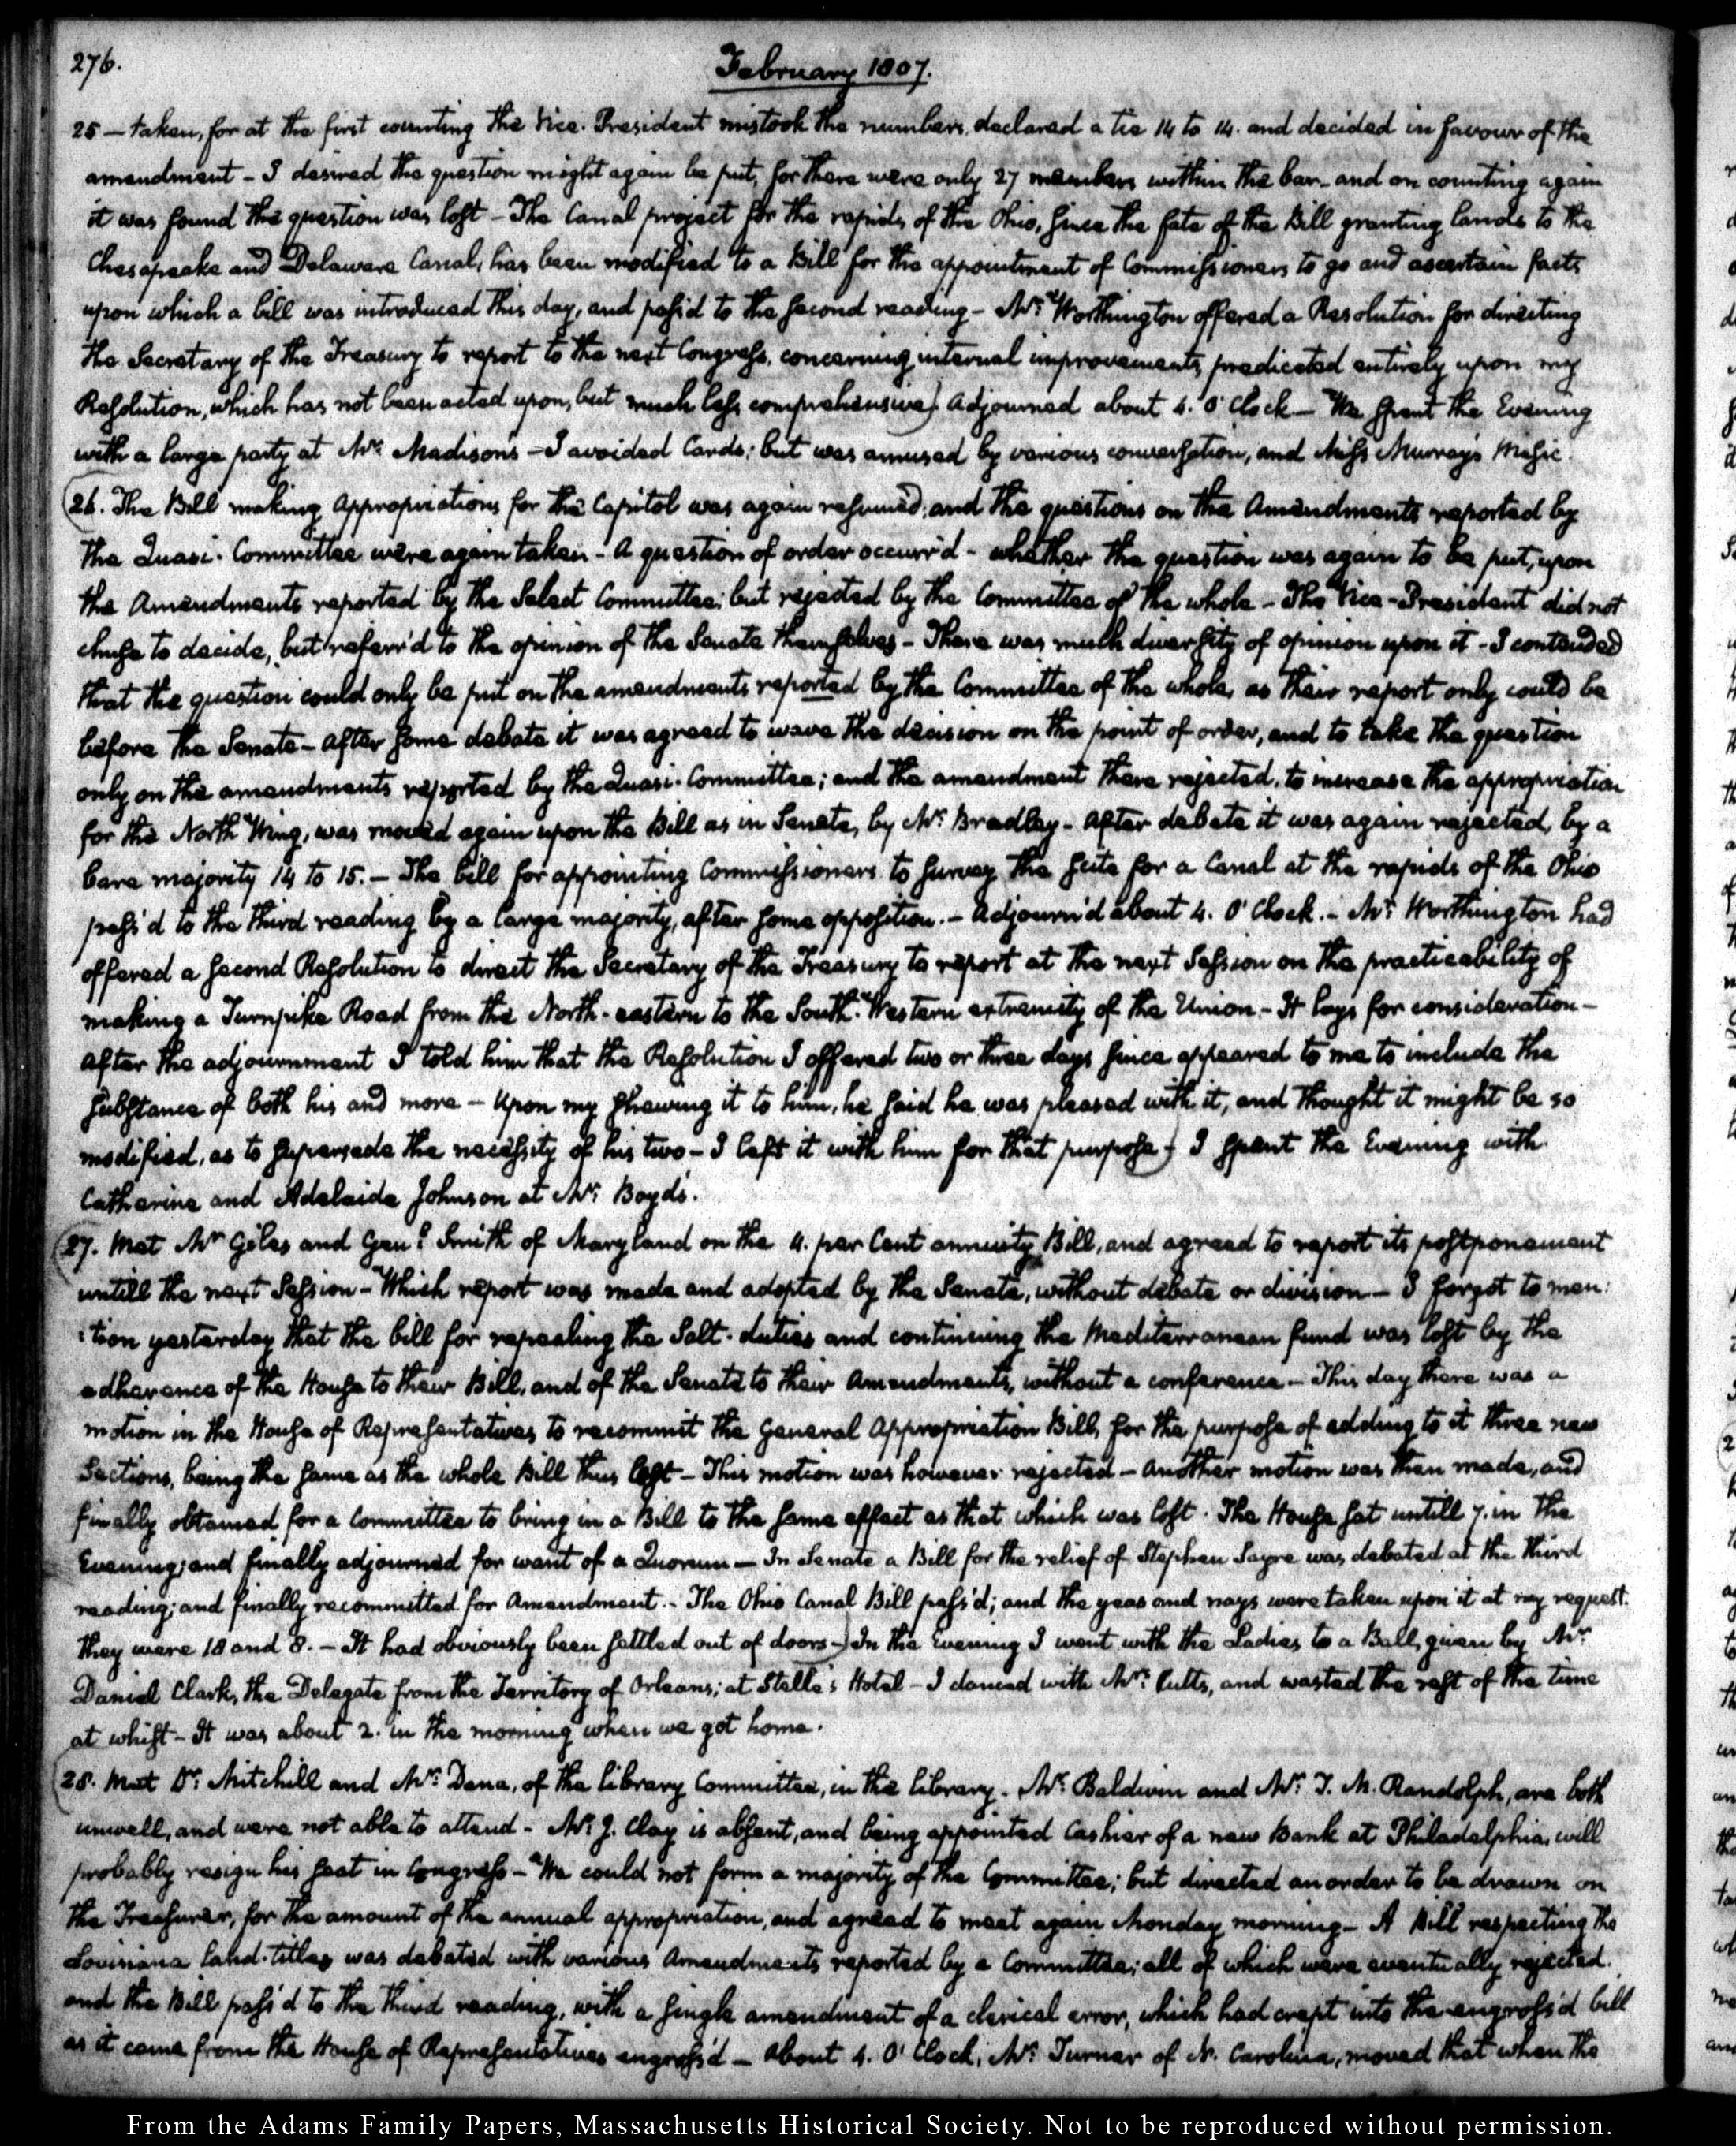 276.
February 1807.
25 — taken, for at the first counting the Vice-President mistook the numbers, declared a tie 14 to 14. and decided in favour of the
amendment - I desired the question might again be put, for there were only 27 members within the bar - and on counting again
it was found the question was lost - The Canal project for the rapids of the Ohio, since the fate of the Bill granting lands to the
Chesapeake and Delaware Canal, has been modified to a Bill for the appointment of Commissioners to go and ascertain facts
upon which a bill was introduced this day, and pass'd to the second reading - Mr. Worthington offered a Resolution for directing
the Secretary of the Treasury to report to the next Congress, concerning internal improvements, predicated entirely upon my
Resolution, which has not been acted upon, but much less comprehensive) Adjourned about 4. O'Clock — We spent the Evening
with a large party at Mr. Madison's - I avoided Cards; but was amused by various conversation, and Miss Murray's Music.
26. The Bill making Appropriations for the Capitol was again resumed; and the questions on the Amendments reported by
the Quasi-Committee were again taken - A question of order occurr'd - whether the question was again to be put, upon
the Amendments reported by the Select Committee; but rejected by the Committee of the whole - The Vice-President did not
chuse to decide, but referr'd to the opinion of the Senate themselves - There was much diversity of opinion upon it - I contended
that the question could only be put on the amendments reported by the Committee of the whole, as their report only could be
before the Senate - After some debate it was agreed to wave the decision on the point of order, and to take the question
only on the amendments reported by the Quasi-Committee; and the amendment there rejected, to increase the appropriation
for the North Wing, was moved again upon the Bill as in Senate, by Mr. Bradley - After debate it was again rejected, by a
bare majority 14 to 15. — The bill for appointing Commissioners to survey the seite for a Canal at the rapids of the Ohio
pass'd to the third reading by a large majority, after some opposition. - Adjourn'd about 4. O'Clock. - Mr. Worthington had
offered a second Resolution to direct the Secretary of the Treasury to report at the next Session on the practicability of
making a Turnpike Road from the North-eastern to the South-Western extremity of the Union - It lays for consideration -
After the adjournment I told him that the Resolution I offered two or three days since appeared to me to include the
substance of both his and more - Upon my shewing it to him, he said he was pleased with it, and thought it might be so
modified, as to supersede the necessity of his two - I left it with him for that purpose) I spent the Evening with
Catherine and Adelaide Johnson at Mr. Boyd's.
27. Met Mr Giles and Genl. Smith of Maryland on the 4. per Cent annuity Bill, and agreed to report its postponement
untill the next Session - Which report was made and adopted by the Senate, without debate or division - I forgot to men:
:tion yesterday that the bill for repealing the Salt-duties and continuing the Mediterranean fund was lost by the
adherence of the House to their Bill, and of the Senate to their Amendments, without a conference - This day there was a
motion in the House of Representatives to recommit the General Appropriation Bill, for the purpose of adding to it three new
Sections, being the same as the whole Bill thus lost - This motion was however rejected - Another motion was then made, and
finally obtained for a Committee to bring in a Bill to the same effect as that which was lost. The House sat untill 7. in the
Evening; and finally adjourned for want of a Quorum — In Senate a Bill for the relief of Stephen Sayre was debated at the third
reading; and finally recommitted for Amendment. - The Ohio Canal Bill pass'd; and the yeas and nays were taken upon it at my request.
They were 18 and 8. - It had obviously been settled out of doors -) In the Evening I went with the Ladies to a Ball, given by Mr.
Daniel Clark, the Delegate from the Territory of Orleans; at Stelle's Hotel - I danced with Mrs. Cutts, and wasted the rest of the time
at whist - It was about 2. in the morning when we got home.
28. Met Dr. Mitchill and Mr. Dana, of the library Committee, in the library. Mr. Baldwin and Mr. T. M. Randolph, are both
unwell, and were not able to attend - Mr. J. Clay is absent, and being appointed Cashier of a new Bank at Philadelphia, will
probably resign his seat in Congress - We could not form a majority of the Committee; but directed an order to be drawn on
the Treasurer, for the amount of the annual appropriation, and agreed to meet again Monday morning - A Bill respecting the
Louisiana land-titles was debated with various Amendments reported by a Committee; all of which were eventually rejected.
and the Bill pass'd to the third reading, with a single amendment of a clerical error, which had crept into the engross'd bill
as it came from the House of Representatives engross'd - About 4. O'Clock, Mr. Turner of N. Carolina, moved that when the
From the Adams Family Papers, Massachusetts Historical Society. Not to be reproduced without permission.